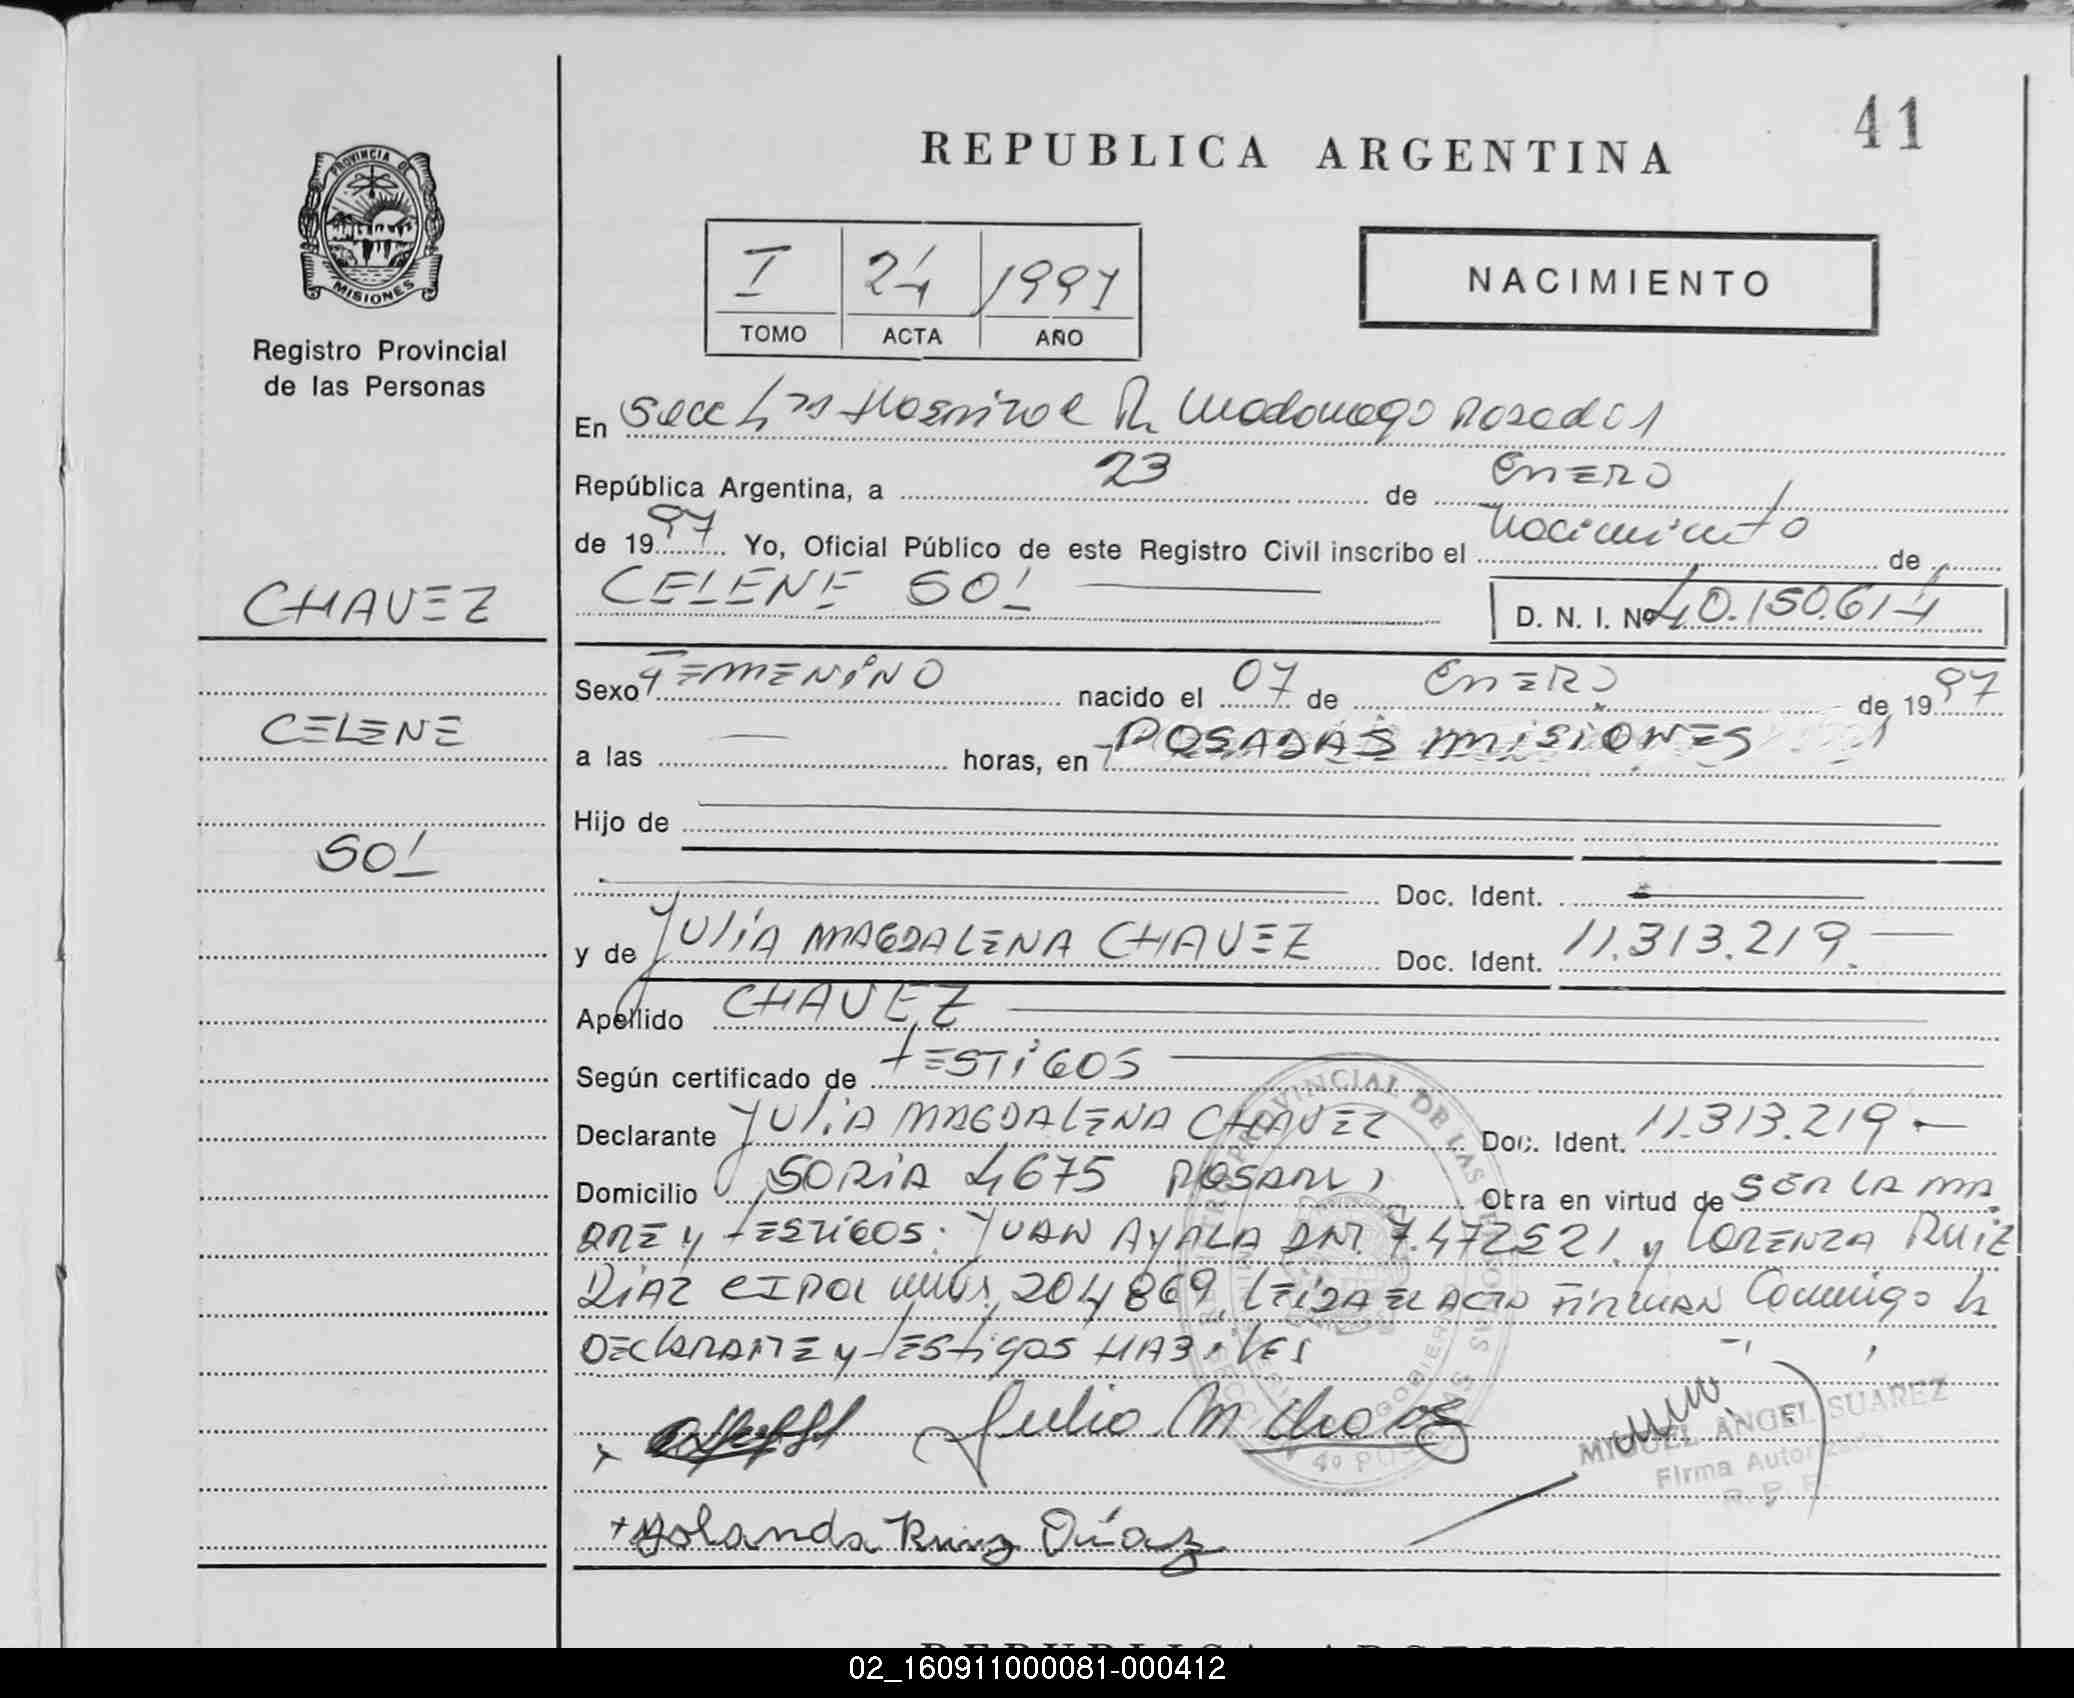 41
REPUBLICA ARGENTINA
PROVINCIA DE
MISIONES
Registro Provincial
de las Personas
I 24 1997
TOMO ACTA AÑO
NACIMIENTO
En Secc Hospital R. Madariaga Posadas
República Argentina, a 23 de ENERO
de 1997 Yo, Oficial Público de este Registro Civil inscribo el Nacimiento de
CELENE SOL
D. N. I. Nº 40.150.614
CHAVEZ
CELENE
SOL
Sexo FEMENINO nacido el 07 de ENERO de 1997
a las — horas, en POSADAS MISIONES
Hijo de
Doc. Ident.
y de JULIA MAGDALENA CHAVEZ Doc. Ident. 11.313.219.—
Apellido CHAVEZ
Según certificado de TESTIGOS
Declarante JULIA MAGDALENA CHAVEZ Doc. Ident. 11.313.219.—
Domicilio SORIA 4675 Obra en virtud de SER LA MA
DRE y TESTIGOS: JUAN AYALA DNI. 7.472521. y LORENZA RUIZ
DIAZ CI POL MNS. 204869. LEIDA EL ACTA FIRMAN Conmigo la
DECLARANTE y TESTIGOS HABILES
Julia M Chavez
MIGUEL ANGEL SUAREZ
Firma Autorizada
R. P. P.
+ Yolanda Ruiz Díaz
02_160911000081-000412